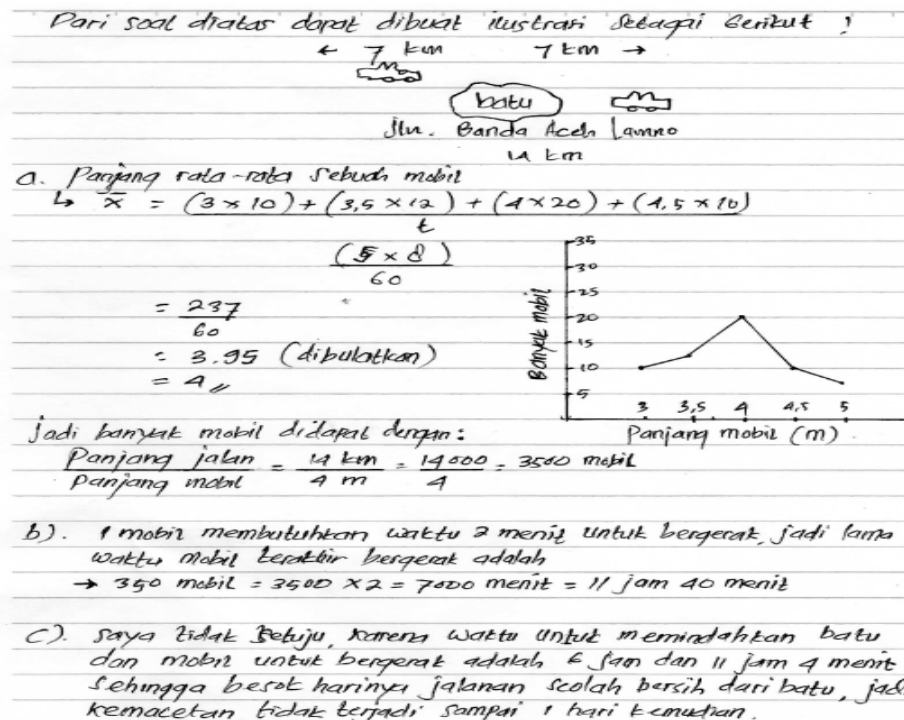 Dari soal diatas dapat dibuat ilustrasi sebagai berikut !
← 7 km 7 km →
batu
Jln. Banda Aceh Lamno
14 km
a. Panjang rata-rata sebuah mobil
↳ x̄ = (3 x 10) + (3,5 x 12) + (4 x 20) + (4,5 x 10)
t
(5 x 8)
60
= 237
60
= 3.95 (dibulatkan)
= 4 //
Banyak mobil
35
30
25
20
15
10
5
3 3,5 4 4,5 5
Panjang mobil (m)
jadi banyak mobil didapat dengan:
Panjang jalan = 14 km = 14000 = 3500 mobil
Panjang mobil 4 m 4
b). 1 mobil membutuhkan waktu 2 menit untuk bergerak, jadi lama
waktu mobil terakhir bergerak adalah
→ 350 mobil = 3500 x 2 = 7000 menit = 11 jam 40 menit
c). saya tidak setuju, karena waktu untuk memindahkan batu
dan mobil untuk bergerak adalah 6 jam dan 11 jam 4 menit
sehingga besok harinya jalanan seolah bersih dari batu, jadi
kemacetan tidak terjadi sampai 1 hari kemudian.